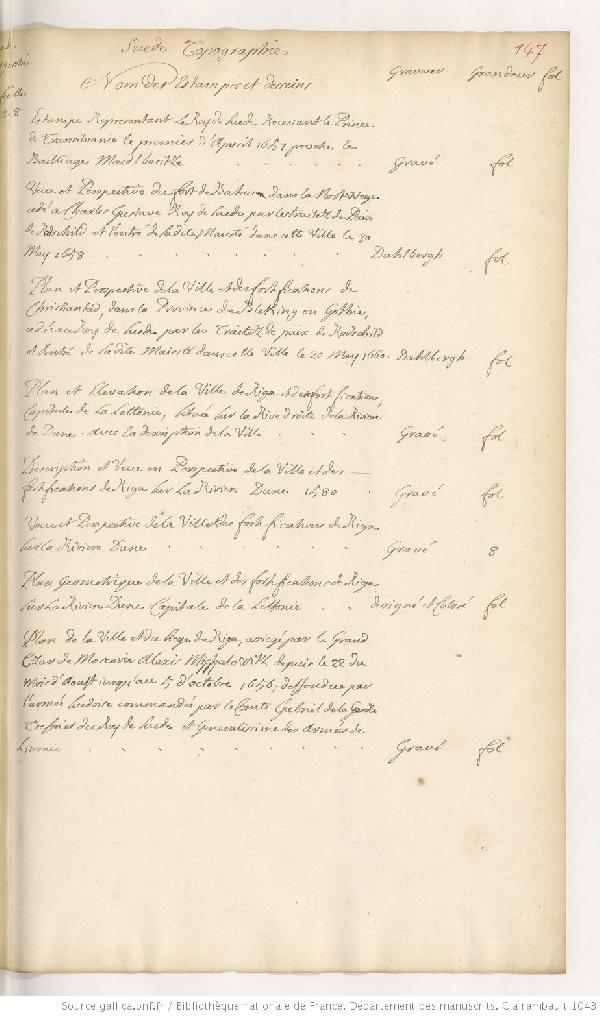 Suede Topographie
147
Nom des Estampes et desseins Graveur Grandeur fol
Estampe Representant Le Roy de Suede Recevant le Prince
de Transilvanie le premier d'Apvril 1657 proche le
Bailliage Gravé fol
Veue et Perspective du fort de dans la Norwege
cedé a Charles Gustave Roy de Suede par les traitez de Paix
de Rodschild et l'entré de ladite Majesté dans cette Ville le 30
May 1658 Dahlbergh fol
Plan et Perspective de la Ville et des fortifications de
Christianstad, dans la Province de Bleking en Gothie,
cedé au Roy de Suede par les Traitez de paix de Rodschild
et Entré de ladite Majesté dans cette Ville le 20 May 1660. Dahlbergh fol
Plan et Elevation de la Ville de Riga et des fortifications,
Capitale de La Lettonie, située sur la Rive droite de la Riviere
de Dune. avec la description de la Ville Gravé. fol
Description et Veue en Perspective de la Ville et des
fortifications de Riga sur La Riviere Dune 1580 Gravé fol
Veue et Perspective de la Ville et des fortifications de Riga
sur la Riviere Dune Gravé 8
Plan Geometrique de la Ville et des fortifications de Riga
sur La Riviere Dune Capitale de la Lettonie designé et Coloré fol
Plan de la Ville et du siege de Riga, assiegé par le Grand
Czar de Moscovie Alexis depuis le 22 du
Mois d'Aoust jusqu'au 5 d'octobre 1656, deffendue par
l'armée suedoise commandée par le Comte Gabriel de la Garde
Tresorier du Roy de Suede et Generalissime des Armées de
Livonie Gravé fol
Source gallica.bnf.fr / Bibliothèque nationale de France. Département des manuscrits. Clairambault 1043